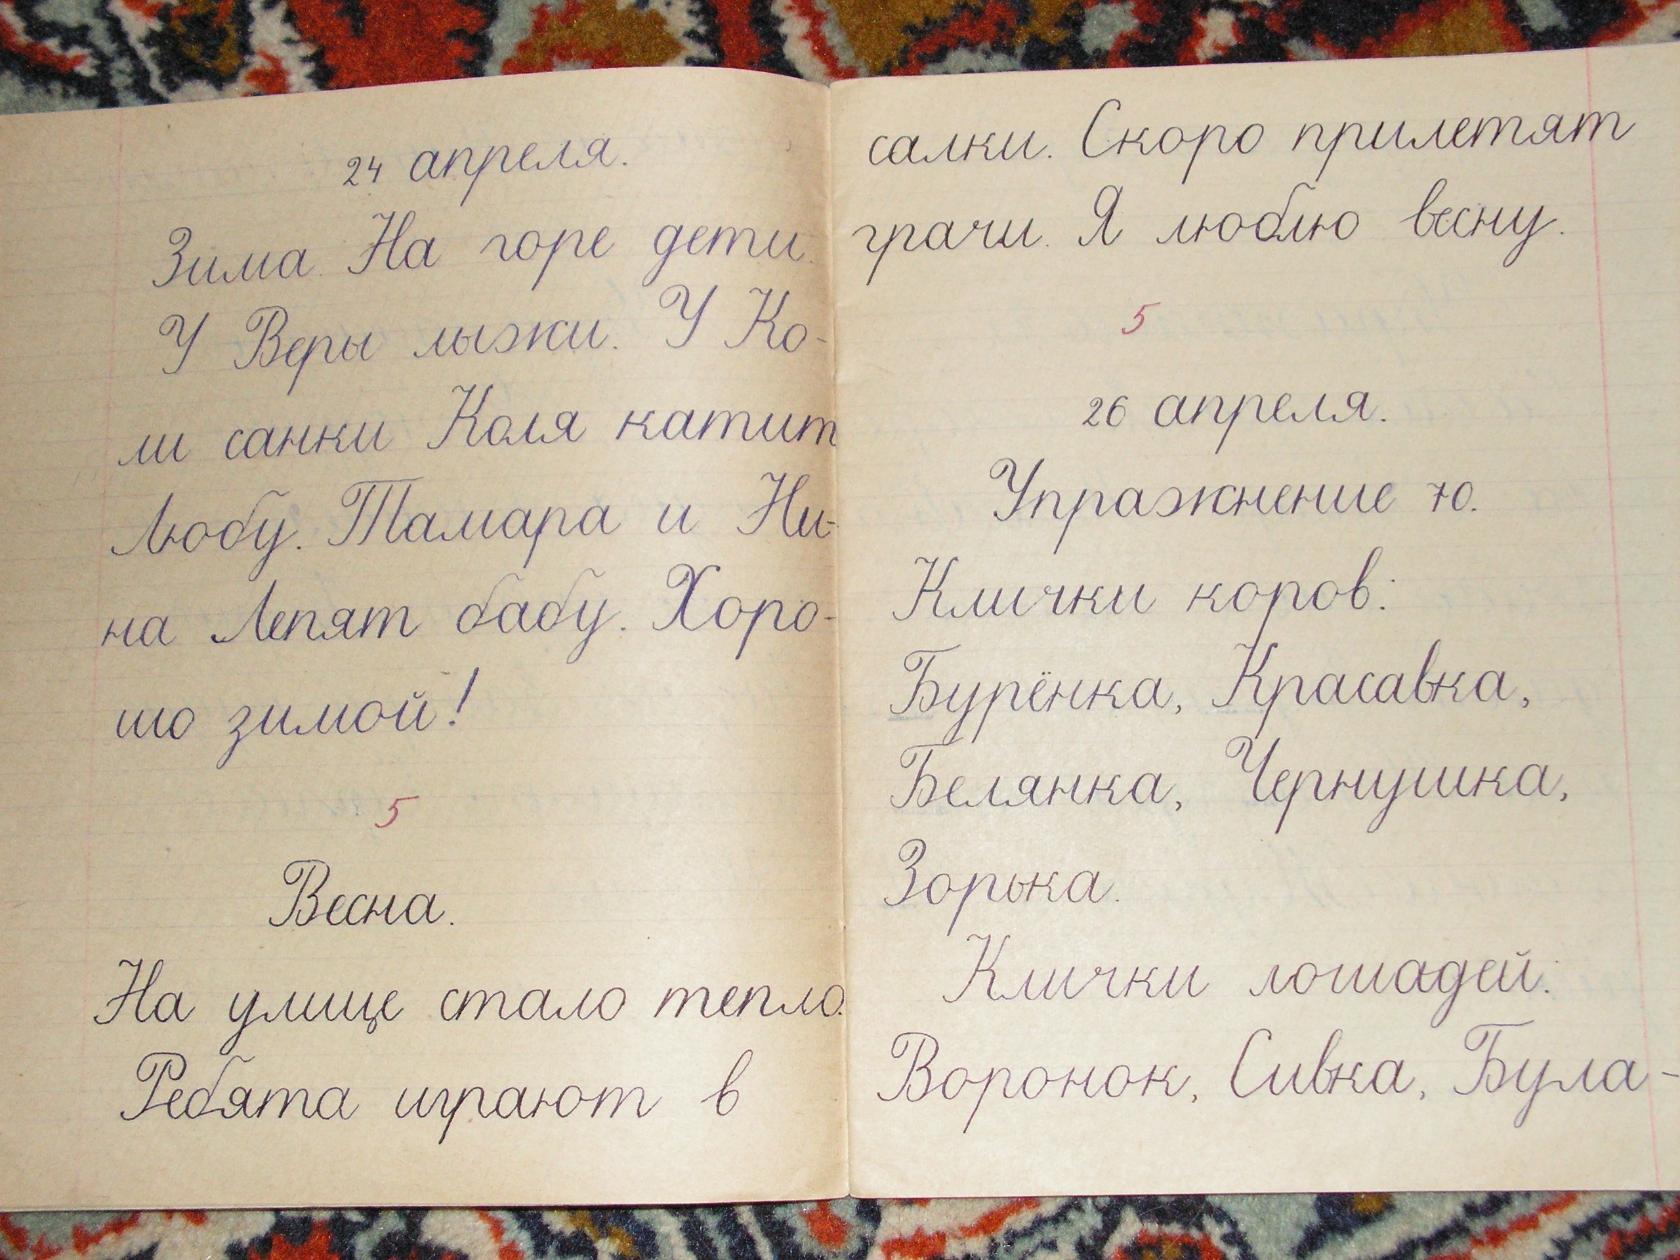 24 апреля.
Зима. На горе дети.
У Веры лыжи. У Ко-
ли санки Коля катит
Любу. Тамара и Ни-
на Лепят бабу. Хоро-
шо зимой!
5
Весна.
На улице стало тепло.
Ребята играют в
салки. Скоро прилетят
грачи. Я люблю весну.
5
26 апреля.
Упражнение 70.
Клички коров:
Бурёнка, Красавка,
Белянка, Чернушка,
Зорька.
Клички лошадей:
Воронок, Сивка, Була-